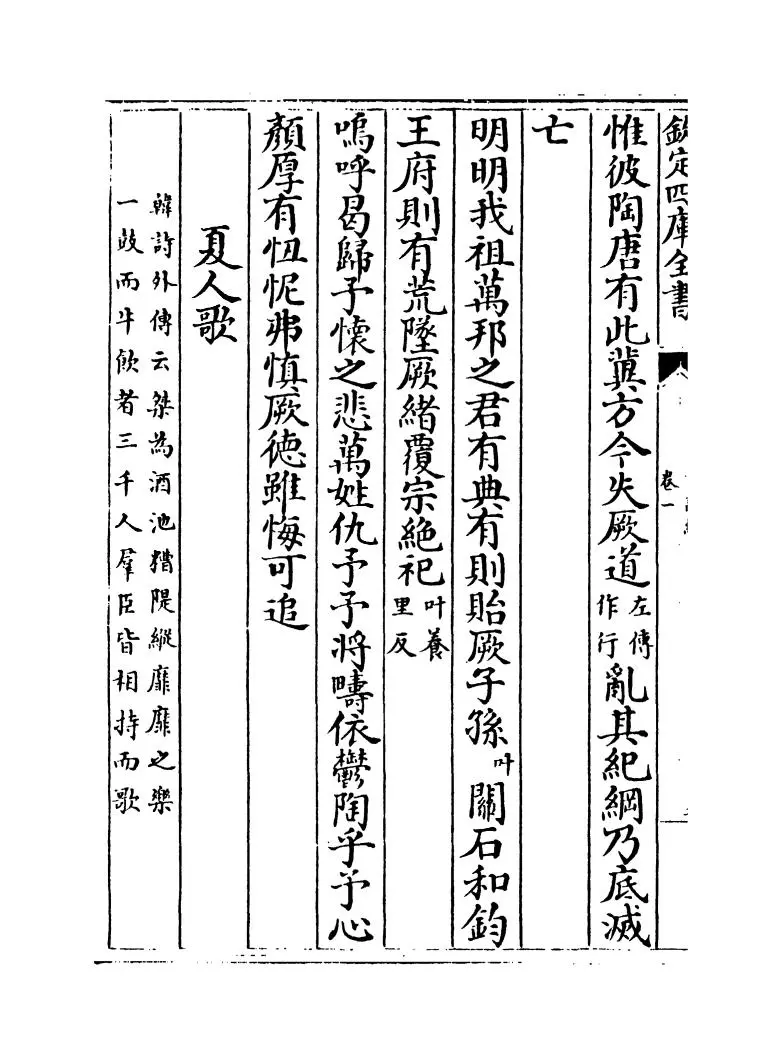 欽定四庫全書
卷一
惟彼陶唐有此冀方今失厥道左傳作行亂其紀綱乃底滅
亡
明明我祖萬邦之君有典有則貽厥子孫叶關石和鈞
王府則有荒墜厥緒覆宗絶祀叶養里反
嗚呼曷歸予懐之悲萬姓仇予予將疇依鬱陶乎予心
顏厚有忸怩弗慎厥徳雖悔可追
夏人歌
韓詩外傳云桀為酒池糟隄縱靡靡之樂
一鼓而牛飲者三千人羣臣皆相持而歌